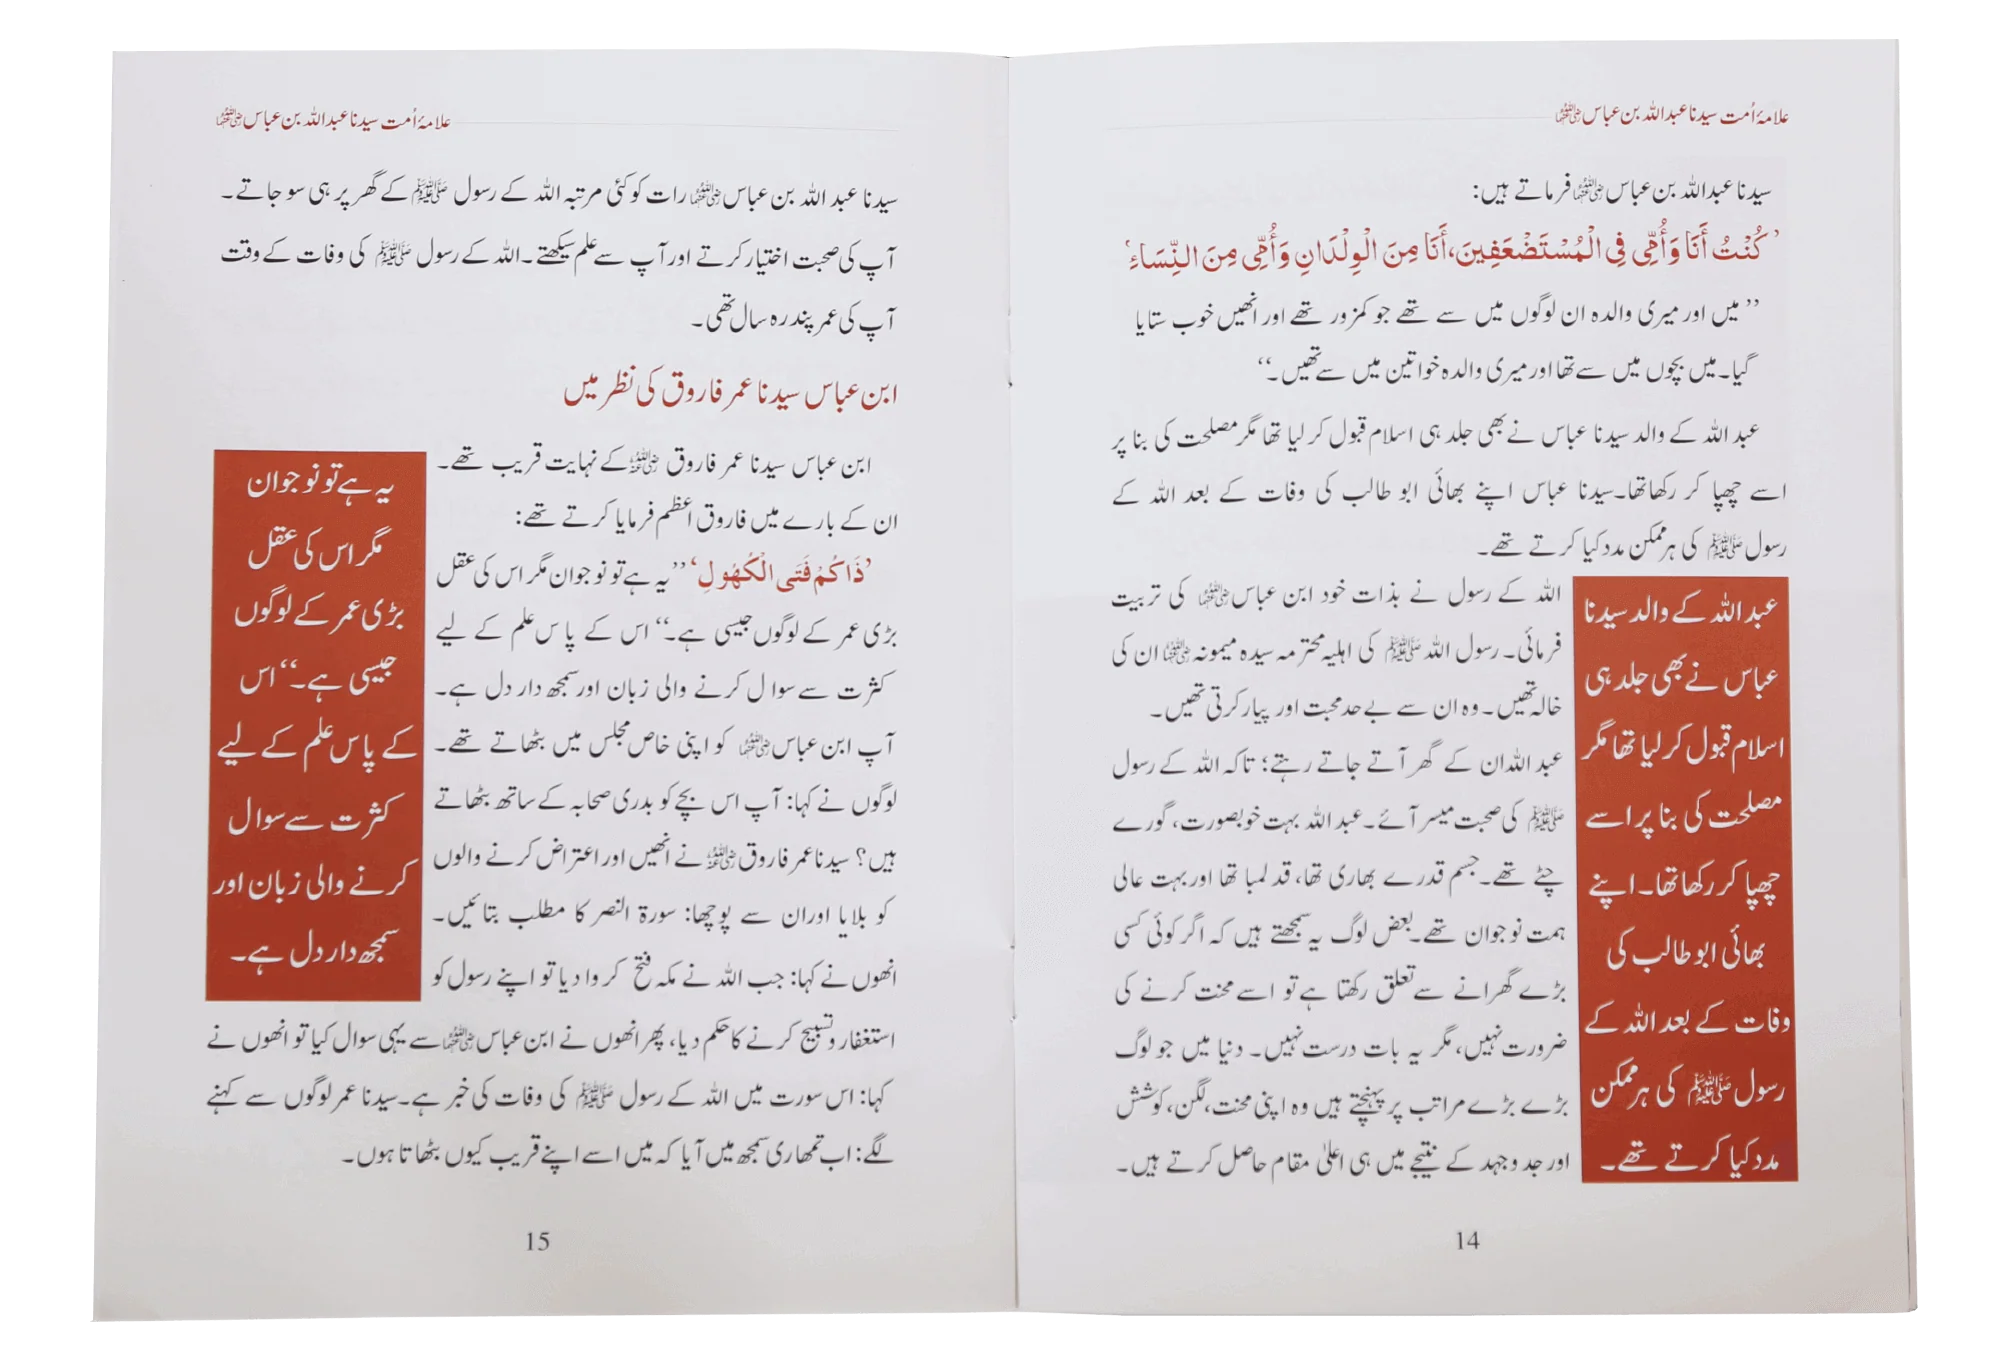 علامۂ اُمت سیدنا عبداللہ بن عباس رضی اللہ عنہما
سیدنا عبداللہ بن عباس رضی اللہ عنہما فرماتے ہیں:
’كُنْتُ أَنَا وَأُمِّى فِى الْمُسْتَضْعَفِينَ، أَنَا مِنَ الْوِلْدَانِ وَأُمِّى مِنَ النِّسَاءِ‘
’’میں اور میری والدہ ان لوگوں میں سے تھے جو کمزور تھے اور انھیں خوب ستایا
گیا۔ میں بچوں میں سے تھا اور میری والدہ خواتین میں سے تھیں۔‘‘
عبد اللہ کے والد سیدنا عباس نے بھی جلد ہی اسلام قبول کر لیا تھا مگر مصلحت کی بنا پر
اسے چھپا کر رکھا تھا۔ سیدنا عباس اپنے بھائی ابو طالب کی وفات کے بعد اللہ کے
رسول ﷺ کی ہر ممکن مدد کیا کرتے تھے۔
اللہ کے رسول نے بذات خود ابن عباس رضی اللہ عنہما کی تربیت
فرمائی۔ رسول اللہ ﷺ کی اہلیہ محترمہ سیدہ میمونہ رضی اللہ عنہا ان کی
خالہ تھیں۔ وہ ان سے بے حد محبت اور پیار کرتی تھیں۔
عبد اللہ ان کے گھر آتے جاتے رہتے؛ تاکہ اللہ کے رسول
ﷺ کی صحبت میسر آئے۔ عبد اللہ بہت خوبصورت، گورے
چٹے تھے۔ جسم قدرے بھاری تھا، قد لمبا تھا اور بہت عالی
ہمت نوجوان تھے۔ بعض لوگ یہ سمجھتے ہیں کہ اگر کوئی کسی
بڑے گھرانے سے تعلق رکھتا ہے تو اسے محنت کرنے کی
ضرورت نہیں، مگر یہ بات درست نہیں۔ دنیا میں جو لوگ
بڑے بڑے مراتب پر پہنچتے ہیں وہ اپنی محنت، لگن، کوشش
اور جد و جہد کے نتیجے میں ہی اعلیٰ مقام حاصل کرتے ہیں۔
عبد اللہ کے والد سیدنا
عباس نے بھی جلد ہی
اسلام قبول کر لیا تھا مگر
مصلحت کی بنا پر اسے
چھپا کر رکھا تھا۔ اپنے
بھائی ابو طالب کی
وفات کے بعد اللہ کے
رسول ﷺ کی ہر ممکن
مدد کیا کرتے تھے۔
14
علامۂ اُمت سیدنا عبداللہ بن عباس رضی اللہ عنہما
سیدنا عبد اللہ بن عباس رضی اللہ عنہما رات کو کئی مرتبہ اللہ کے رسول ﷺ کے گھر پر ہی سو جاتے۔
آپ کی صحبت اختیار کرتے اور آپ سے علم سیکھتے۔ اللہ کے رسول ﷺ کی وفات کے وقت
آپ کی عمر پندرہ سال تھی۔
ابن عباس سیدنا عمر فاروق کی نظر میں
ابن عباس سیدنا عمر فاروق رضی اللہ عنہ کے نہایت قریب تھے۔
ان کے بارے میں فاروق اعظم فرمایا کرتے تھے:
’ذَاكُمْ فَتَى الْكُهُولِ‘ ’’یہ ہے تو نوجوان مگر اس کی عقل
بڑی عمر کے لوگوں جیسی ہے۔‘‘ اس کے پاس علم کے لیے
کثرت سے سوال کرنے والی زبان اور سمجھ دار دل ہے۔
آپ ابن عباس رضی اللہ عنہما کو اپنی خاص مجلس میں بٹھاتے تھے۔
لوگوں نے کہا: آپ اس بچے کو بدری صحابہ کے ساتھ بٹھاتے
ہیں؟ سیدنا عمر فاروق رضی اللہ عنہ نے انھیں اور اعتراض کرنے والوں
کو بلایا اور ان سے پوچھا: سورۃ النصر کا مطلب بتائیں۔
انھوں نے کہا: جب اللہ نے مکہ فتح کروا دیا تو اپنے رسول کو
استغفار و تسبیح کرنے کا حکم دیا، پھر انھوں نے ابن عباس رضی اللہ عنہما سے یہی سوال کیا تو انھوں نے
کہا: اس سورت میں اللہ کے رسول ﷺ کی وفات کی خبر ہے۔ سیدنا عمر لوگوں سے کہنے
لگے: اب تمھاری سمجھ میں آیا کہ میں اسے اپنے قریب کیوں بٹھاتا ہوں۔
یہ ہے تو نوجوان
مگر اس کی عقل
بڑی عمر کے لوگوں
جیسی ہے۔‘‘ اس
کے پاس علم کے لیے
کثرت سے سوال
کرنے والی زبان اور
سمجھ دار دل ہے۔
15